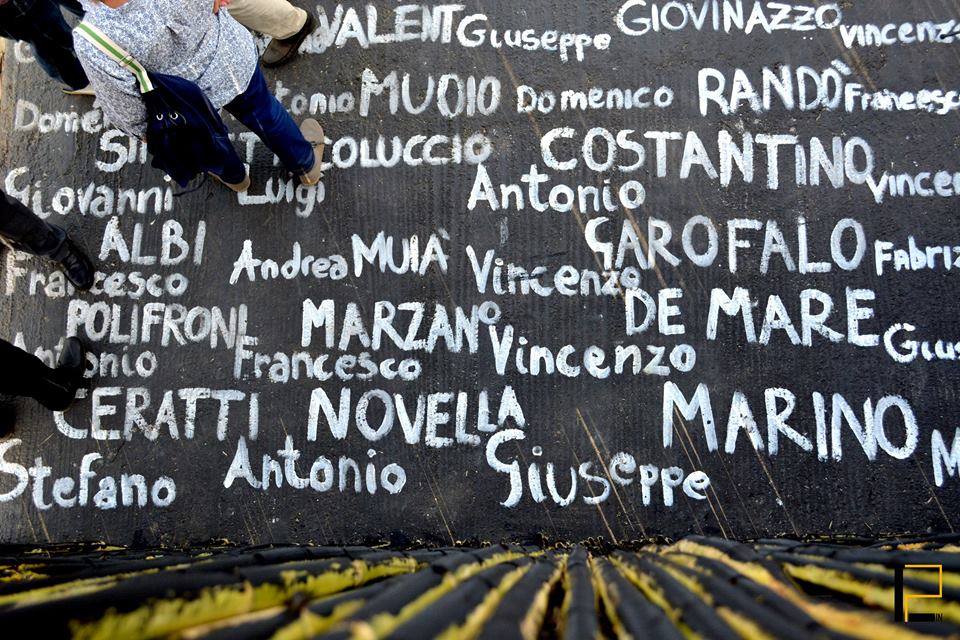 VALENT Giuseppe GIOVINAZZO Vincenzo
MUOIO Domenico RANDÒ Francesco
COLUCCIO COSTANTINO
Giovanni Luigi Antonio
ALBI MUIÀ GAROFALO
Francesco Andrea Vincenzo
POLIFRONI MARZANO DE MARE
Antonio Francesco Vincenzo
CERATTI NOVELLA MARINO
Stefano Antonio Giuseppe